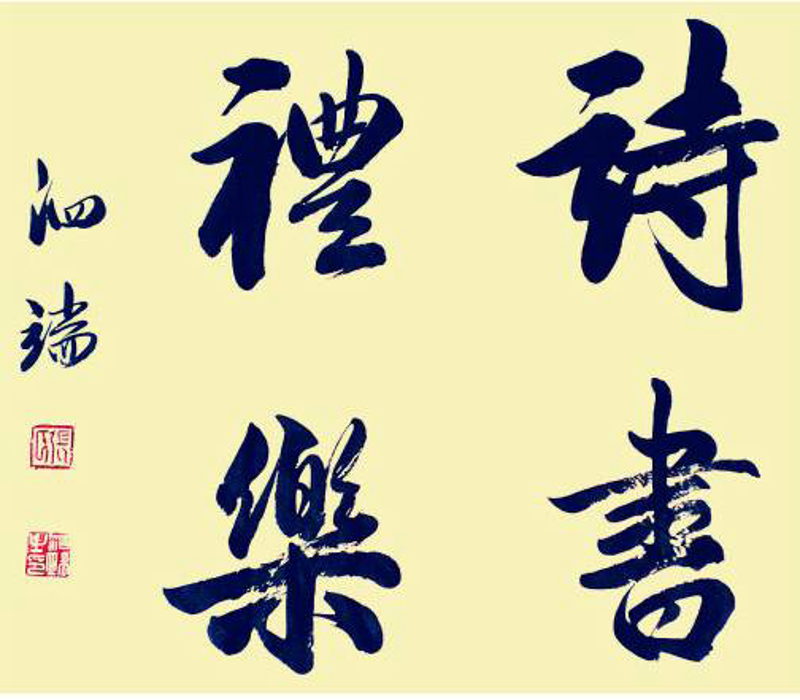 詩書
禮樂
泗端